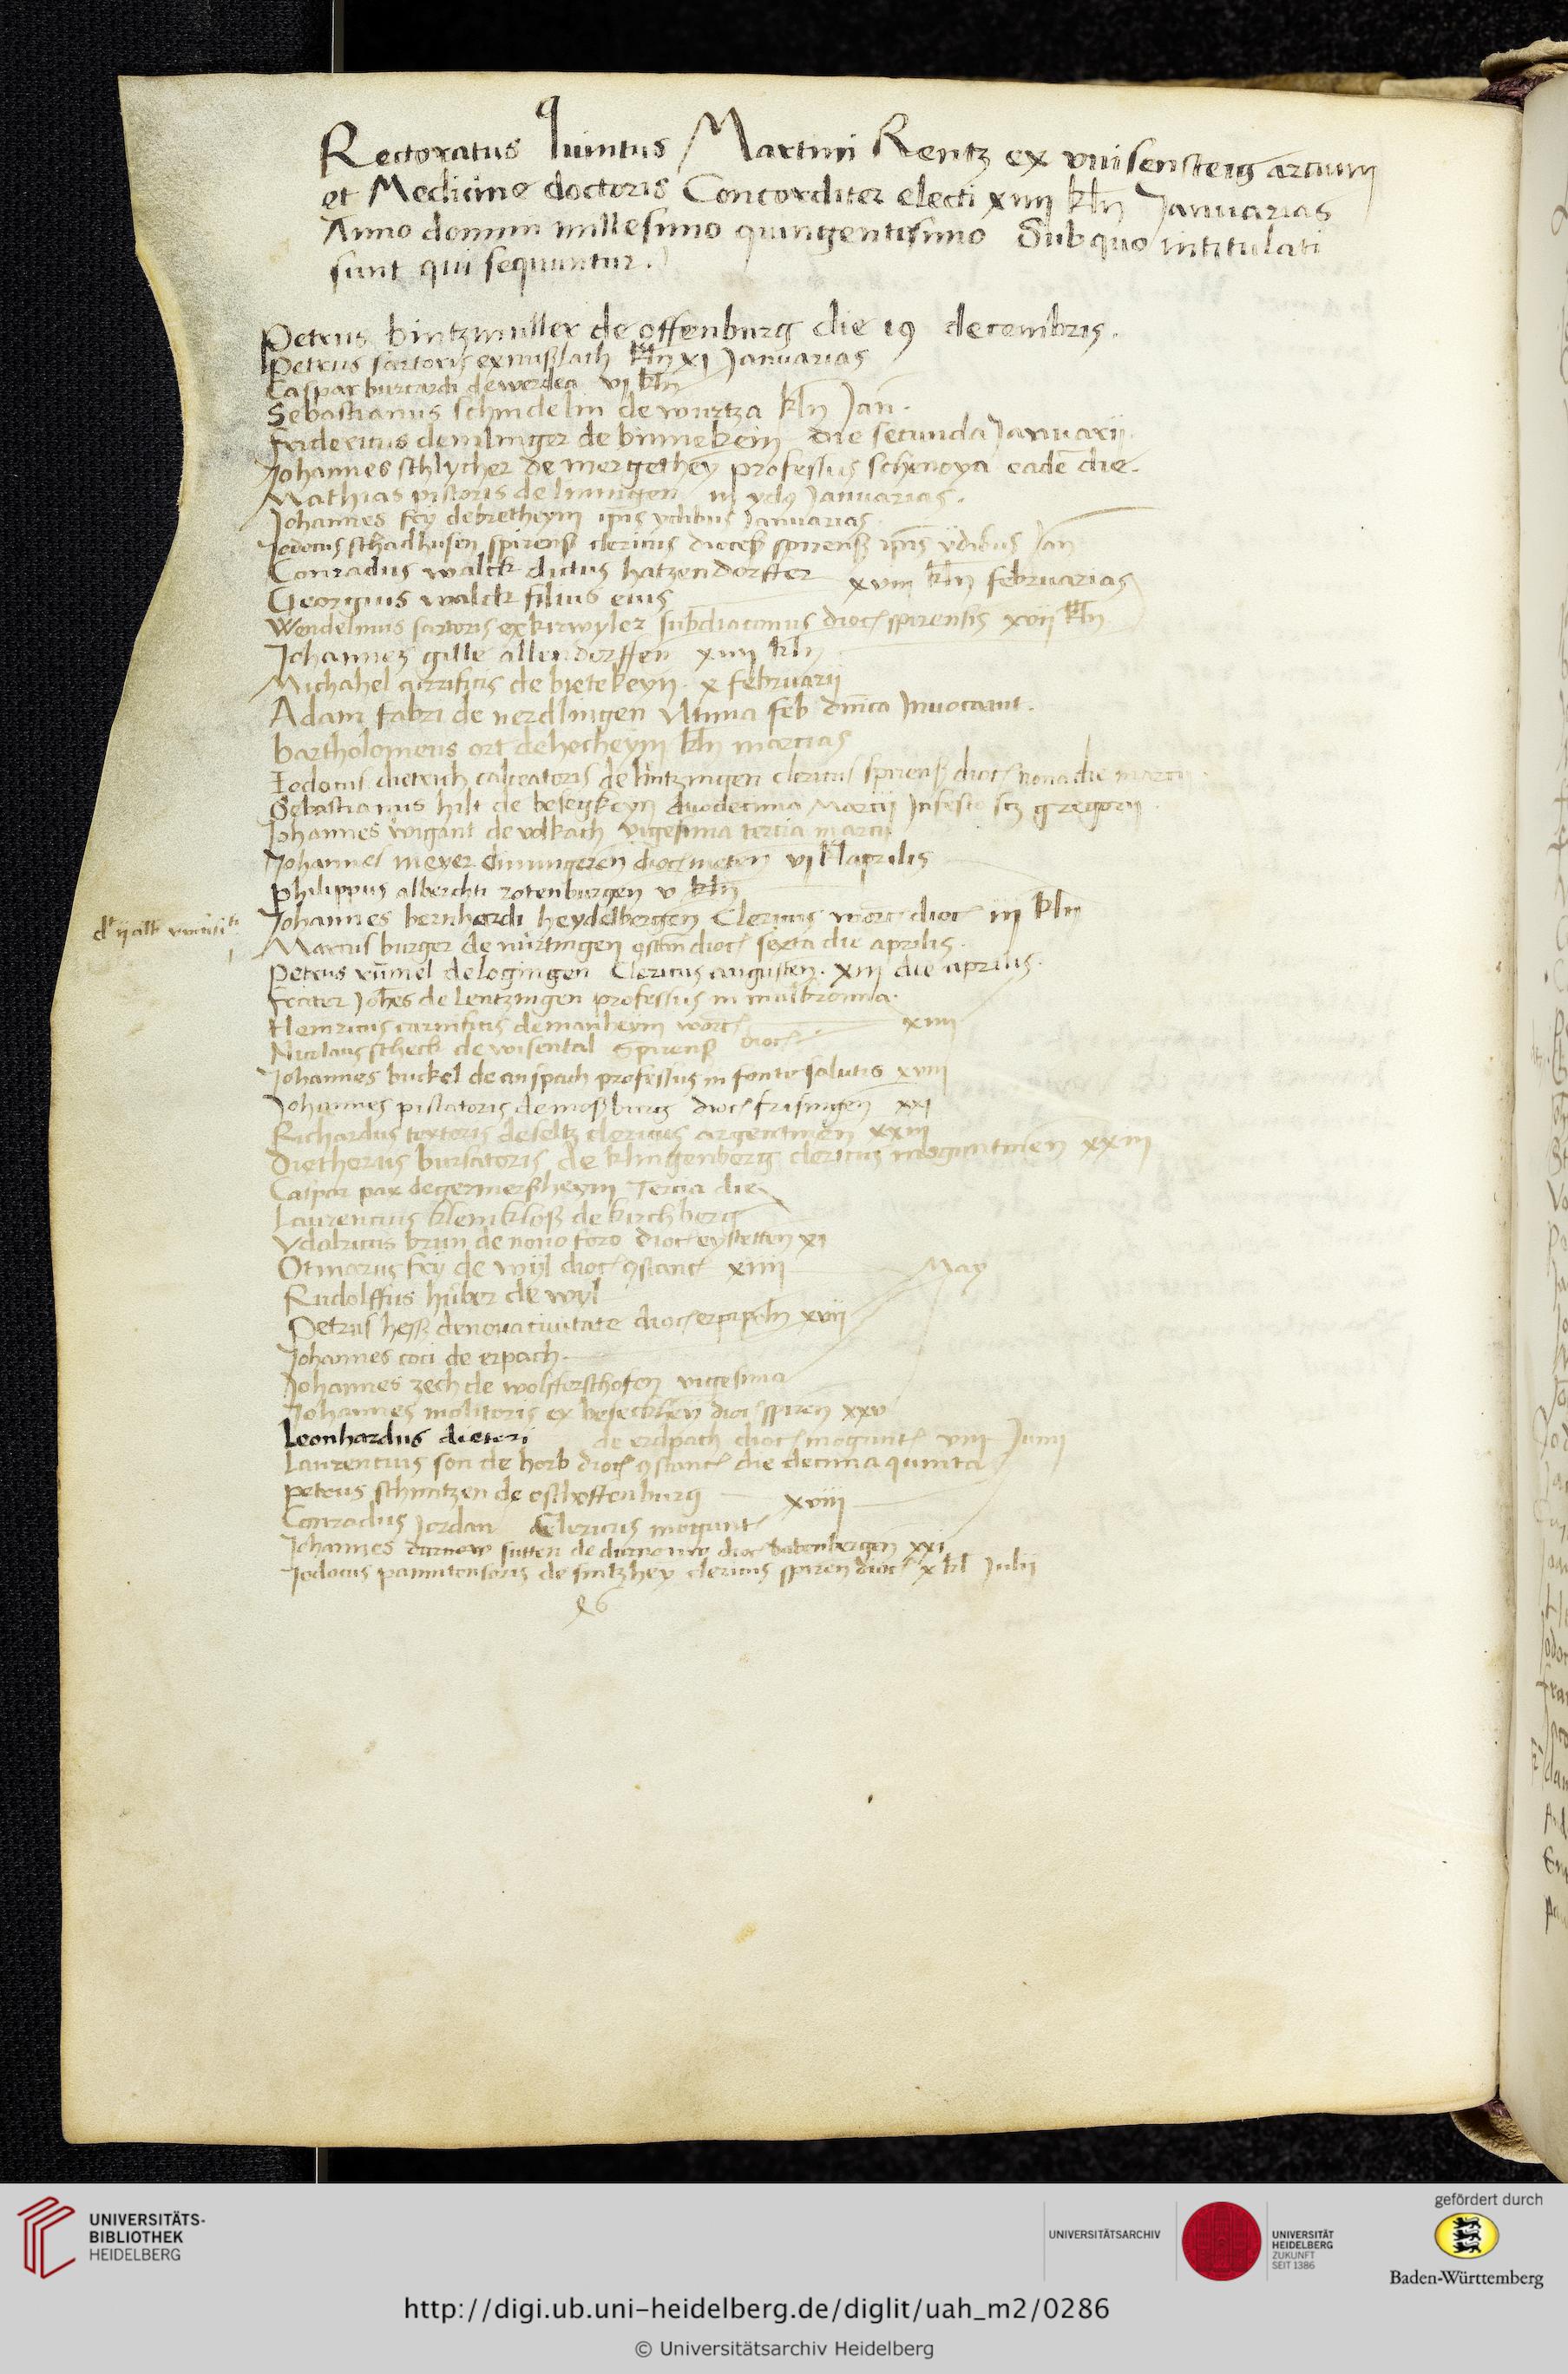 Rectoratus quintus Martini Rentz ex wisensteig arcium
et Medicine doctoris Concorditer electi xiiij kln Januarias
Anno domini millesimo quingentisimo Sub quo intitulati
sunt qui sequuntur.
Petrus bintzmuller de offenburg die 19 decembris.
Petrus sartoris ex mußbach kln xj Januarias
Caspar burcardi de werdea vj kln
Sebastianus schindelin de wurtza kln Jan.
fridericus demlinger de binnekein die secunda Januarij
Johannes schlycher de mergethey professus schenoya eadē die.
Mathias pistoris de liningen iij ydꝯ Januarias.
Johannes fey de bretheym ip̄is ydibus Januarias
Jodocus schadhusen spirenß clericus diocesß spirenß ip̄is ydibus Jan
Conradus walck dictus hatzendorffer xviij kln februarias
Georgius walck filius eius
Wendelinus sartoris ex kirwyler subdiaconus dioc spirensis xvij kln
Johannes gille allendorffen xiiij kln
Michahel carnificis de bietekeyn x februarij
Adam fabri de nerdlingen Ultima feb dn̄ica Invocavit.
bartholomeus ort de hocheym kln marcias
Iodocus dietrich calceatoris de kintzingen clericus spirenß dioc nona die marcij
Sebastianus hilt de besegkeyn duodecima Marcij In festo sc̄i gregorij
Johannes wigant de volkach vigesima tercia marcij
Johannes meyer dioc meten vj kl aprilis
philippus alberchti rotenburgen v kln
Johannes bernhardi heydelbergen Clericus worc dioc iij kln
Marcus burger de nürtingen ꝯstan dioc sexta die aprilis.
Petrus rümel de logingen Clericus augusten. xiij die aprilis.
frater Joh̄es de lentzingen professus in mulbronna.
Henricus carnificis de manheym worc xiiij
Nicolaus scheck de wisental Spirenß dioc
Johannes buckel de anspach professus in fonte salutis xviij
Johannes piscatoris de moßburg dioc frisingen xxj
Richardus textoris de seltz clericus argentinen xxiij
Dietherus bursatoris de klingenberg clericus maguntinen xxiij
Caspar pax de germerßheym Tercia die
Laurencius kleinkloß de kirchberg
Vdalricus brun de novo foro dioc eystetten xj
Otmarus fry de wyl dioc ꝯstanc xiiij May
Rudolffus hüber de wyl
Petrus heß de nova civitate dioc xvij
Johannes coci de erpach
Johannes zech de wolfferschofen vigesima
Johannes molitoris ex beseckheỹ dioc spiren xxv
Leonhardus dieteri de erdpach dioc mogunt viij Junij
Laurencius son de horb dioc ꝯstanc die decima quinta
petrus schintzen de esthoffenburg xviij
Conradus Jordan Clericus mogunt
Johannes sutten de dioc babenbergen xxj
Jodocus pannitonsoris de sintzhey clericus spiren dioc x kl Julij
UNIVERSITÄTS-
BIBLIOTHEK
HEIDELBERG
UNIVERSITÄTSARCHIV
UNIVERSITÄT
HEIDELBERG
ZUKUNFT
SEIT 1386
gefördert durch
Baden-Württemberg
http://digi.ub.uni-heidelberg.de/diglit/uah_m2/0286
© Universitätsarchiv Heidelberg